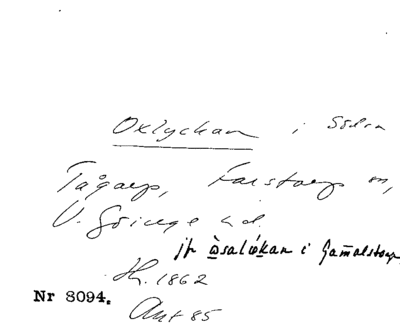 Oxlyckan i Södra
Tågarp, Farstorps sn,
V. Göinge hd.
jfr òsalẃkan i Gamalstorp
Hl. 1862
Nr 8094.
Ant 85